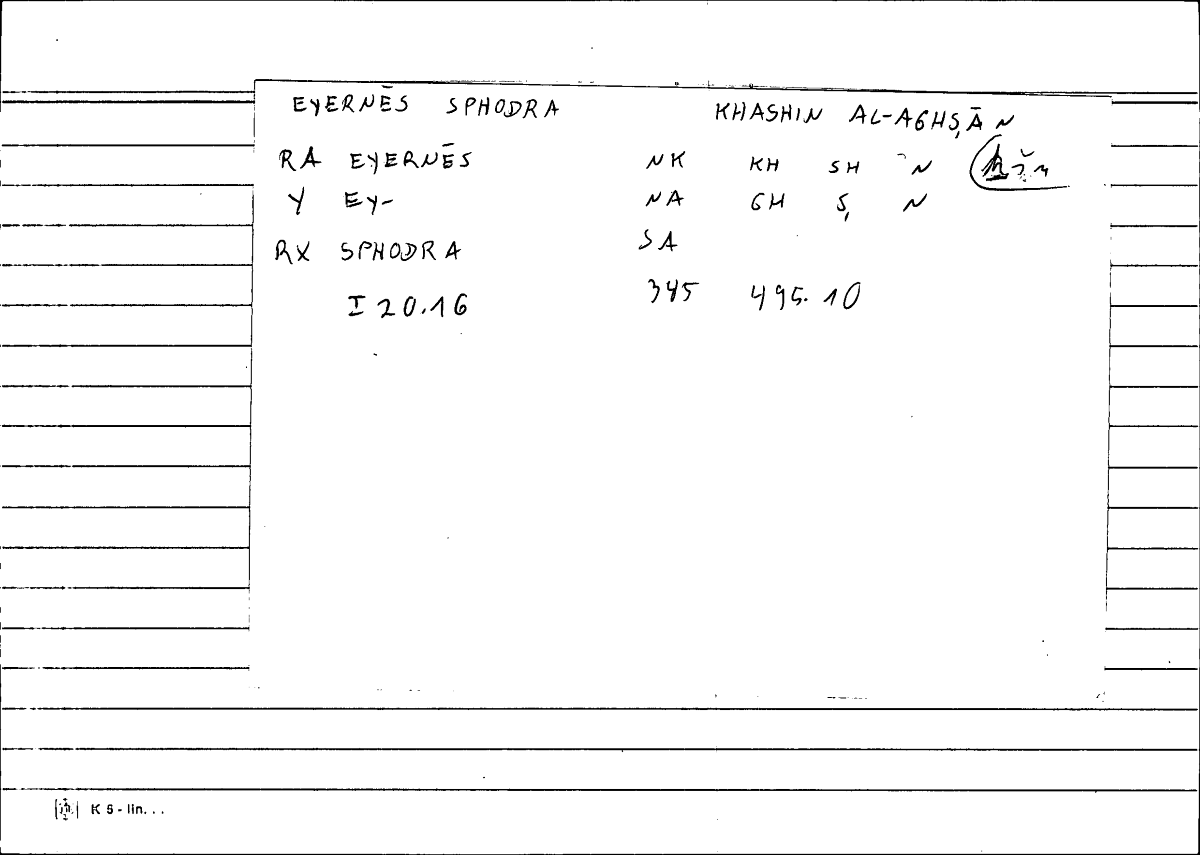 EYERNĒS SPHODRA KHASHIN AL-AGHṢĀN
RA EYERNĒS NK KH SH N ḫšn
Y EY- NA GH Ṣ N
RX SPHODRA SA
I 20.16 345 495.10
K 5 - lin. . .